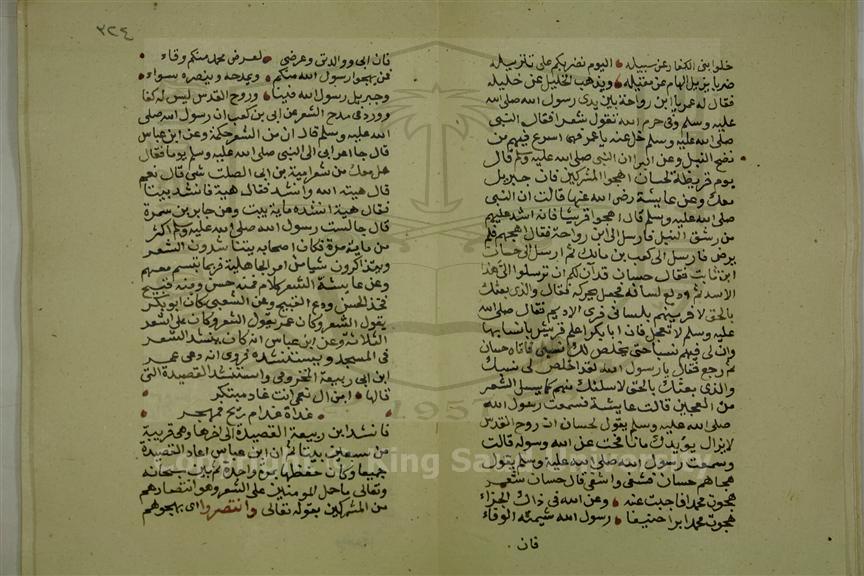 خلوا بني الكفار عن سبيله • اليوم نضربكم على تنزيله
ضربا يزيل الهام عن مقيله • ويذهل الخليل عن خليله
فقال له عمر يا ابن رواحة بين يدى رسول الله صلى الله
عليه وسلم وفي حرم الله تقول شعرا فقال النبي
صلى الله عليه وسلم خل عنه يا عمر فهي اسرع فيهم من
نضح النبل وعن البرا ان النبي صلى الله عليه وسلم قال
يوم قريظة لحسان اهجوا المشركين فان جبريل
معك وعن عايشة رضى الله عنها قالت ان النبي
صلى الله عليه وسلم قال اهجوا قريشا فانه اشد عليهم
من رشق النبل فارسل الى ابن رواحة فقال اهجهم فلم
يرض فارسل الى كعب بن مالك ثم ارسل الى حسان
ابن ثابت فقال حسان قد آن لكم ان ترسلوا الى هذا
الاسد ثم دلع لسانه فجعل يحركه فقال والذى بعثك
بالحق لافرينهم بلسانى فري الاديم فقال صلى الله
عليه وسلم لا تعجل فان ابا بكر اعلم قريش بانسابها
وان لي فيهم نسبا حتى يخلص لك نسبي فاتاه حسان
ثم رجع فقال يا رسول الله لقد اخلص لي نسبك
والذى بعثك بالحق لاسلنك منهم كما يسل الشعر
من العجين قالت عايشة فسمعت رسول الله
صلى الله عليه وسلم يقول لحسان ان روح القدس
لا يزال يؤيدك ما نافحت عن الله ورسوله قالت
وسمعت رسول الله صلى الله عليه وسلم يقول
هجاهم حسان فشفى واشتفى قال حسان شعر
هجوت محمدا فاجبت عنه • وعن الله في ذاك الجزاء
هجوت محمدا برا حنيفا • رسول الله شيمته الوفاء
فان
٣٢٤
فان ابى ووالدتى وعرضى • لعرض محمد منكم وقاء •
فمن يهجوا رسول الله منكم • ويمدحه وينصره سواء •
وجبريل رسول الله فينا • وروح القدس ليس له كفا
وورد في مدح الشعر عن ابى بن كعب ان رسول الله صلى
الله عليه وسلم قال ان من الشعر حكمة وعن ابن عباس
قال جا اعرابى الى النبي صلى الله عليه وسلم يوما فقال
هل معك من شعر امية بن ابى الصلت شي قال نعم
قال هيته الله وانشد فقال هية فانشد بيتا
فقال هية انشده ماية بيت وعن جابر بن سمرة
قال جالست رسول الله صلى الله عليه وسلم اكثر
من ماية مرة فكان اصحابه يتناشدون الشعر
ويتذاكرون شيا من امر الجاهلية فربما يتبسم معهم
وعن عايشة الشعر كلام فمنه حسن ومنه قبيح
فخذ الحسن ودع القبيح وعن الشعبي كان ابو بكر
يقول الشعر وكان عمر يقول الشعر وكان علي اشعر
الثلاثة وعن ابن عباس انه كان ينشد الشعر
في المسجد ويستنشده فروي انه دعى عمر
ابن ابى ربيعة المخزومي واستنشده القصيدة التى
قالها • امن ال نعمى انت غاد مبتكر
• غداة غد ام رايح فمهجر •
فانشد ابن ربيعة القصيدة الى اخرها وهى قريبة
من سبعين بيتا ثم ان ابن عباس اعاد القصيدة
جميعا وكان حفظها من واحدة ثم بين سبحانه
وتعالى ما حمل المومنين على الشعر وهو انتصارهم
من المشركين بقوله تعالى وانتصروا اى بهجوهم